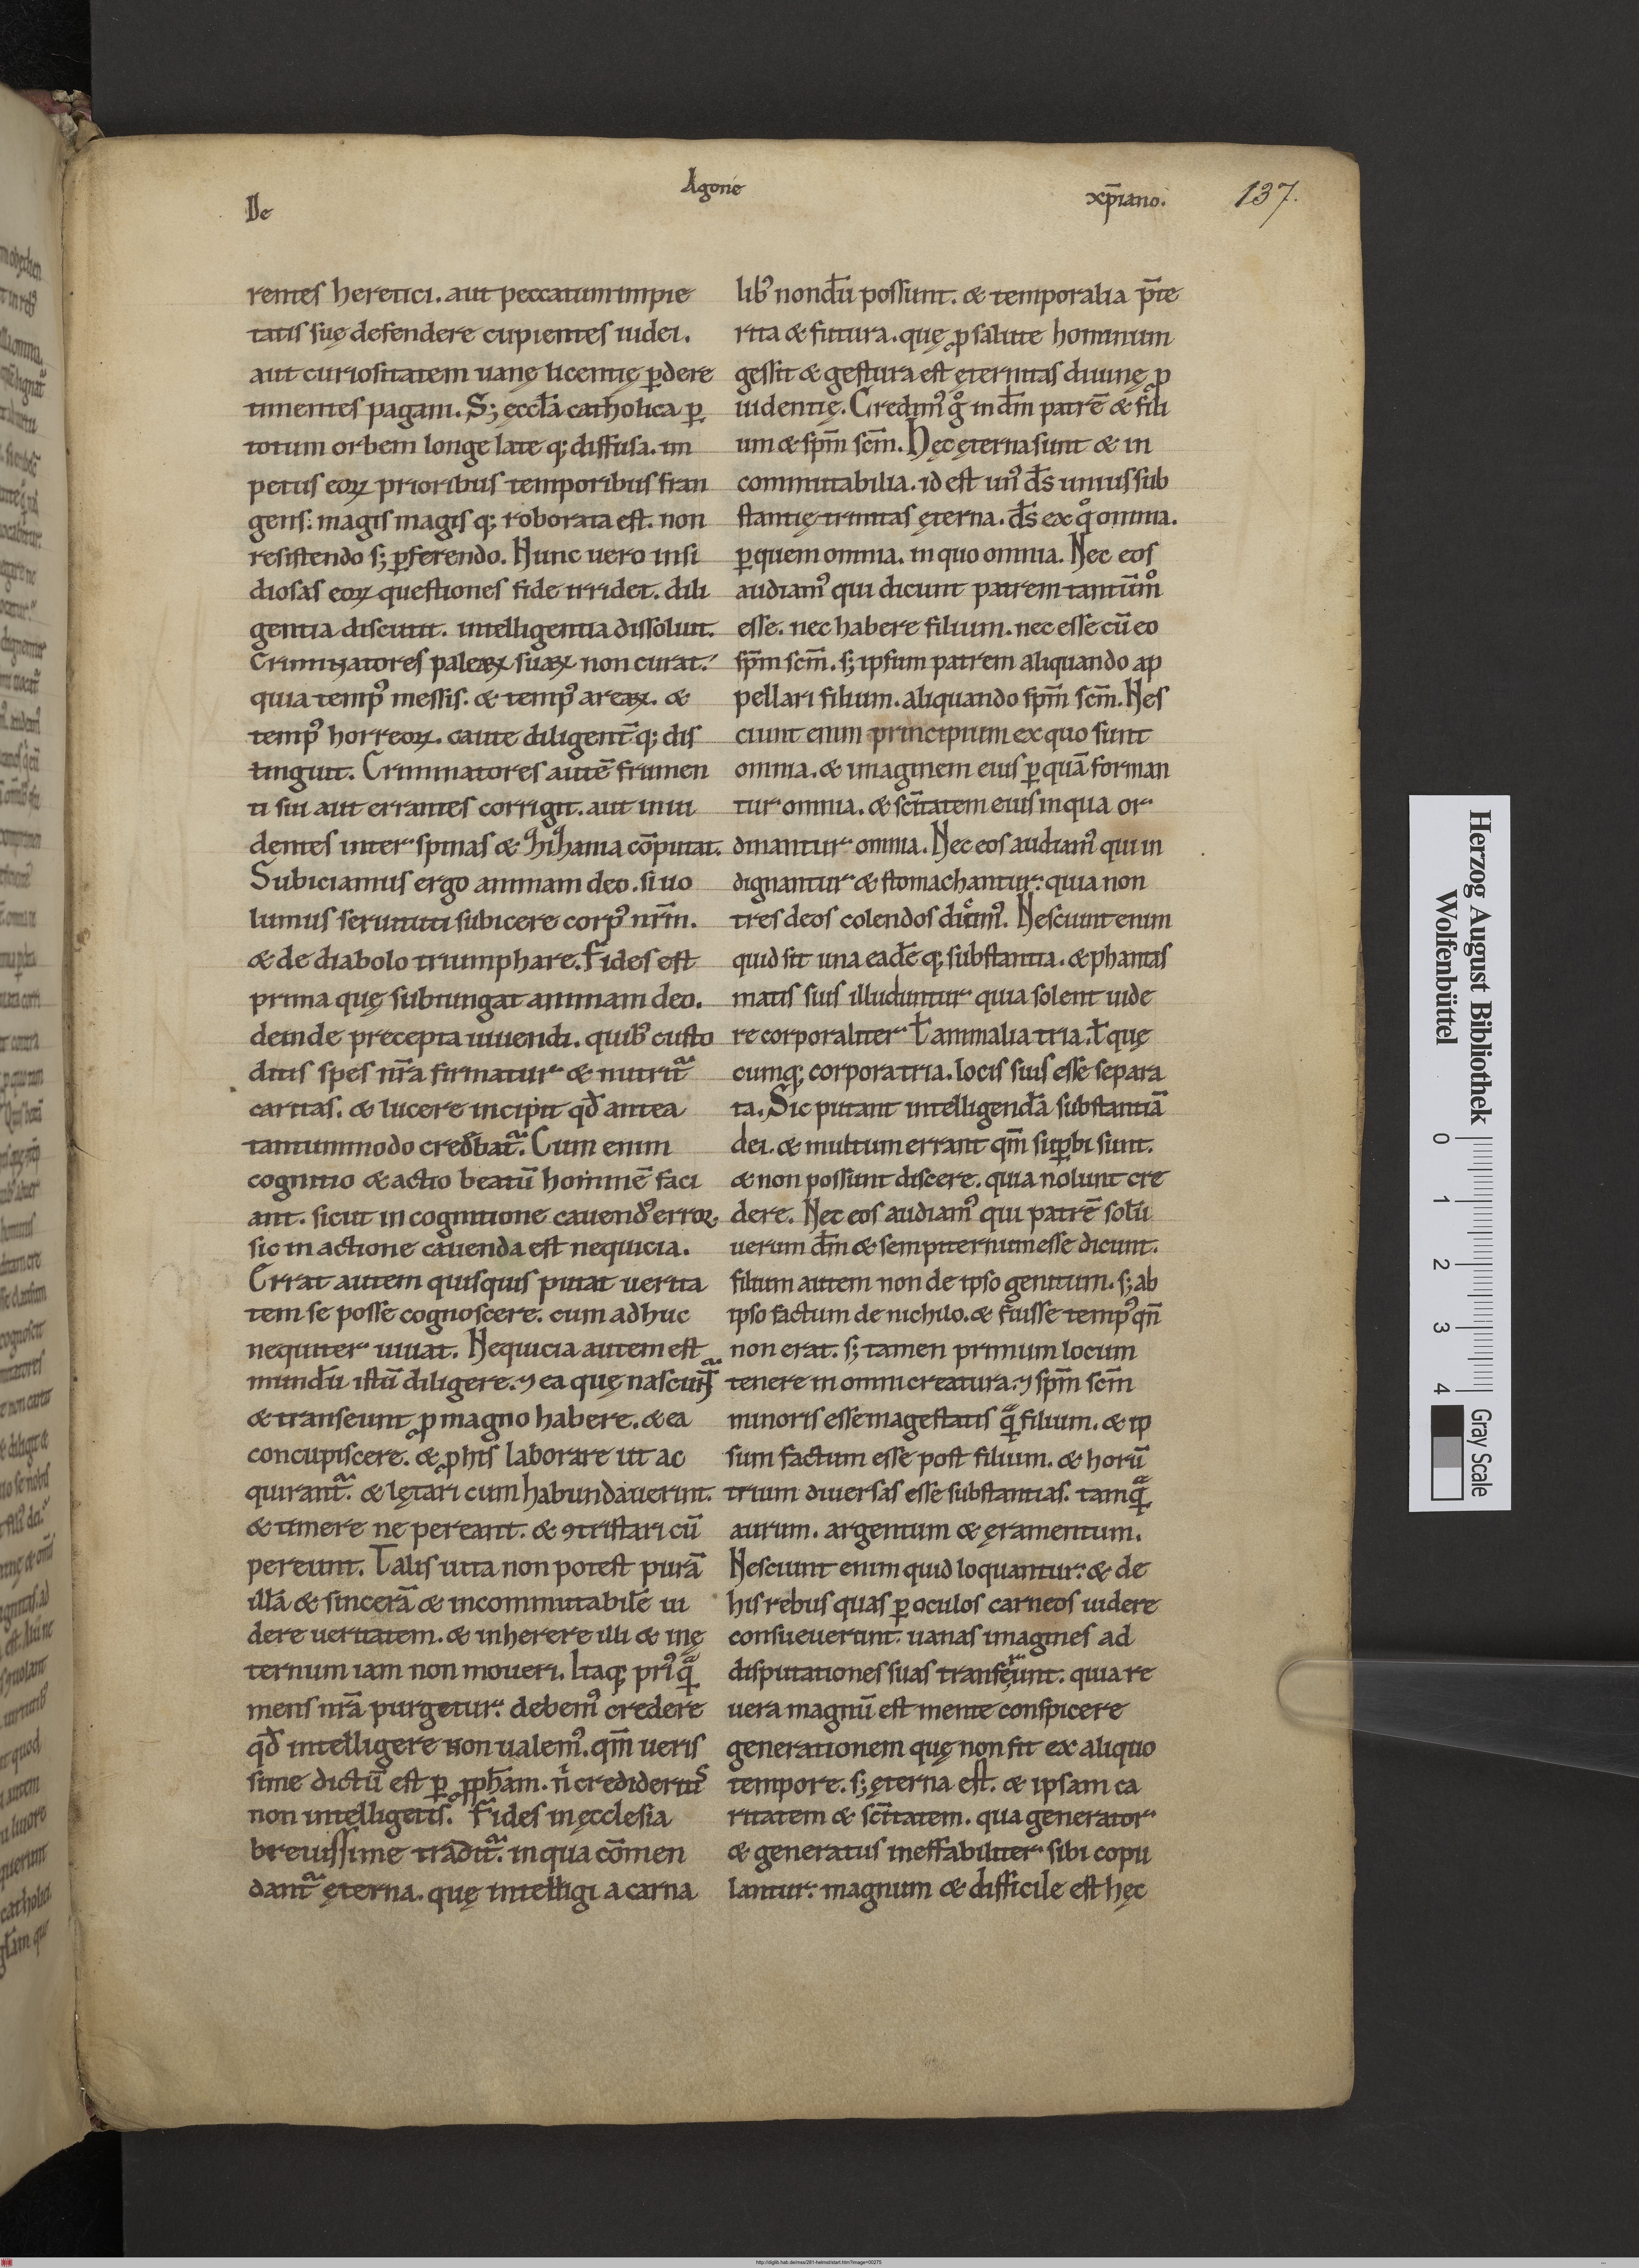 De Agone xp̄iano. 137.
rentes heretici. aut peccatum impie
tatis suę defendere cupientes iudei.
aut curiositatem uanę licentię ꝑdere
timentes pagani. S; ęccl̄a catholica ꝑ
totum orbem longe late q; diffusa. im
petus eoꝝ prioribus temporibus fran
gens: magis magis q; roborata est. non
resistendo s; ꝑferendo. Nunc uero insi
diosas eoꝝ questiones fide irridet. dili
gentia discutit. intelligentia dissoluit.
Criminatores paleaꝝ suaꝝ non curat:
quia temp᾽ messis. & temp᾽ areaꝝ. &
temp᾽ horreoꝝ. caute diligent̄ q; dis
tinguit. Criminatores autē frumen
ti sui aut errantes corrigit. aut inui
dentes inter spinas & zizania cōputat.
Subiciamus ergo animam deo. si uo
lumus seruituti subicere corp᾽ nr̄m.
& de diabolo triumphare. Fides est
prima quę subiungat animam deo.
deinde precepta uiuendi. quib᾽ custo
ditis spes nr̄a firmatur & nutrit᷑
caritas. & lucere incipit qd̄ antea
tantummodo credebat᷑. Cum enim
cognitio & actio beatū hominē faci
ant. sicut in cognitione cauend᾽ error
sic in actione cauenda est nequicia.
Errat autem quisquis putat uerita
tem se posse cognoscere. cum adhuc
nequiter uiuat. Nequicia autem est
mundū istū diligere. ⁊ ea quę nascunt᷑
& transeunt ꝓ magno habere. & ea
concupiscere. & ꝓ his laborare ut ac
quirant᷑. & lętari cum habundauerint.
& timere ne pereant. & ꝯtristari cū
pereunt. Talis uita non potest purā
illā & sincerā & incommutabilē ui
dere ueritatem. & inherere illi & in ę
ternum iam non moueri. Itaq; pri᾽ qᷓ
mens nr̄a purgetur: debem᾽ credere
qd̄ intelligere non ualem᾽. qm̄ ueris
sime dictū est ꝑ ꝓph̄am. n̄ credideritis
non intelligetis. Fides in ęcclesia
breuissime tradit᷑. in qua cōmen
dant᷑ ęterna. quę intelligi a carna
lib᾽ nondū possunt. & temporalia p̄te
rita & futura. quę ꝓ salute hominum
gessit & gestura est ęternitas diuinę ꝓ
uidentię. Credim᾽ gͦ in dm̄ patrē & fili
um & sp̄m scm̄. Hęc ęterna sunt & in
commutabilia. id est un᾽ ds̄ unius sub
stantię trinitas ęterna. ds̄ ex qͦ omnia.
ꝑ quem omnia. in quo omnia. Nec eos
audiam᾽ qui dicunt patrem tantūmͦ
esse. nec habere filium. nec esse cū eo
sp̄m scm̄. s; ipsum patrem aliquando ap
pellari filium. aliquando sp̄m scm̄. Nes
ciunt enim principium ex quo sunt
omnia. & imaginem eius ꝑ quā forman
tur omnia. & sc̄itatem eius in qua or
dinantur omnia. Nec eos audiam᾽ qui in
dignantur & stomachantur: quia non
tres deos colendos dicim᾽. Nesciunt enim
quid sit una eadē q; substantia. & phantas
matis suis illuduntur quia solent uide
re corporaliter ł animalia tria. ł quę
cumq; corpora tria. locis suis esse separa
ta. Sic putant intelligendā substantiā
dei. & multum errant qm̄ suꝑbi sunt.
& non possunt discere. quia nolunt cre
dere. Nec eos audiam᾽ qui patrē solū
uerum dm̄ & sempiternum esse dicunt.
filium autem non de ipso genitum. s; ab
ipso factum de nichilo. & fuisse temp᾽ qn̄
non erat. s; tamen primum locum
tenere in omni creatura. ⁊ sp̄m scm̄
minoris esse magestatis qᷓ filium. & ip
sum factum esse post filium. & horū
trium diuersas esse substantias. tamqᷓ
aurum. argentum & ęramentum.
Nesciunt enim quid loquantur: & de
his rebus quas ꝑ oculos carneos uidere
consueuerunt. uanas imagines ad
disputationes suas transferunt. quia re
uera magnū est mente conspicere
generationem quę non fit ex aliquo
tempore. s; ęterna est. & ipsam ca
ritatem & sc̄itatem. qua generator
& generatus ineffabiliter sibi copu
lantur: magnum & difficile est hęc
Herzog August Bibliothek
Wolfenbüttel
0 1 2 3 4
Gray Scale
http://diglib.hab.de/mss/281-helmst/start.htm?image=00275